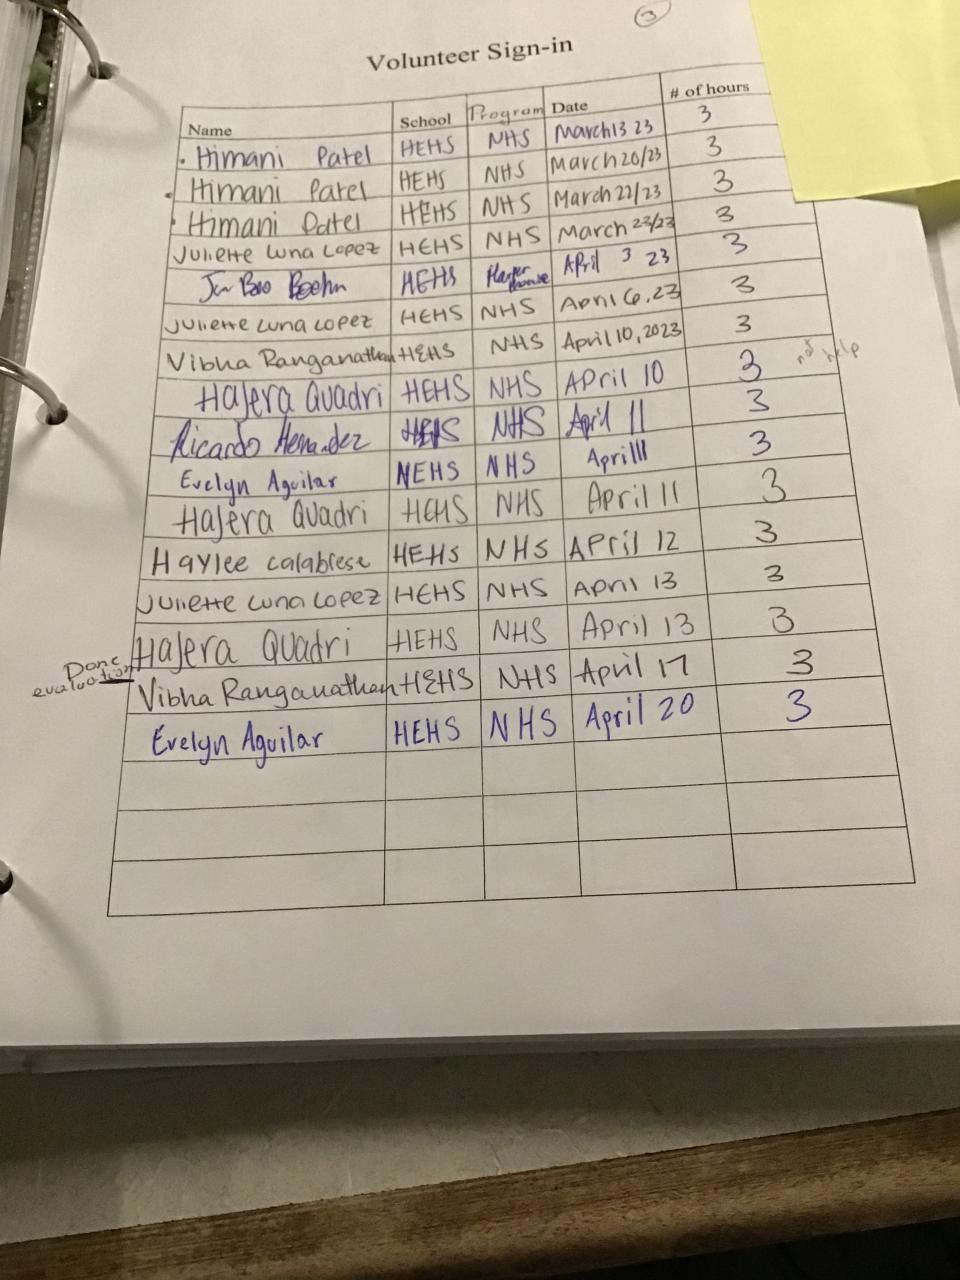 3
Volunteer Sign-in
Name School Program Date # of hours
Himani Patel HEHS NHS March 13 23 3
Himani Patel HEHS NHS March 20/23 3
Himani Patel HEHS NHS March 22/23 3
Juliette Luna Lopez HEHS NHS March 23/23 3
HEHS April 3 23 3
Juliette Luna Lopez HEHS NHS April 6, 23 3
Vibha Ranganathan HEHS NHS April 10, 2023 3
Hajera Quadri HEHS NHS April 10 3 not help
Ricardo Hernandez HEHS NHS April 11 3
Evelyn Aguilar HEHS NHS April 11 3
Hajera Quadri HEHS NHS April 11 3
Haylee Calabrese HEHS NHS April 12 3
Juliette Luna Lopez HEHS NHS April 13 3
Hajera Quadri HEHS NHS April 13 3
Done evaluation
Vibha Ranganathan HEHS NHS April 17 3
Evelyn Aguilar HEHS NHS April 20 3